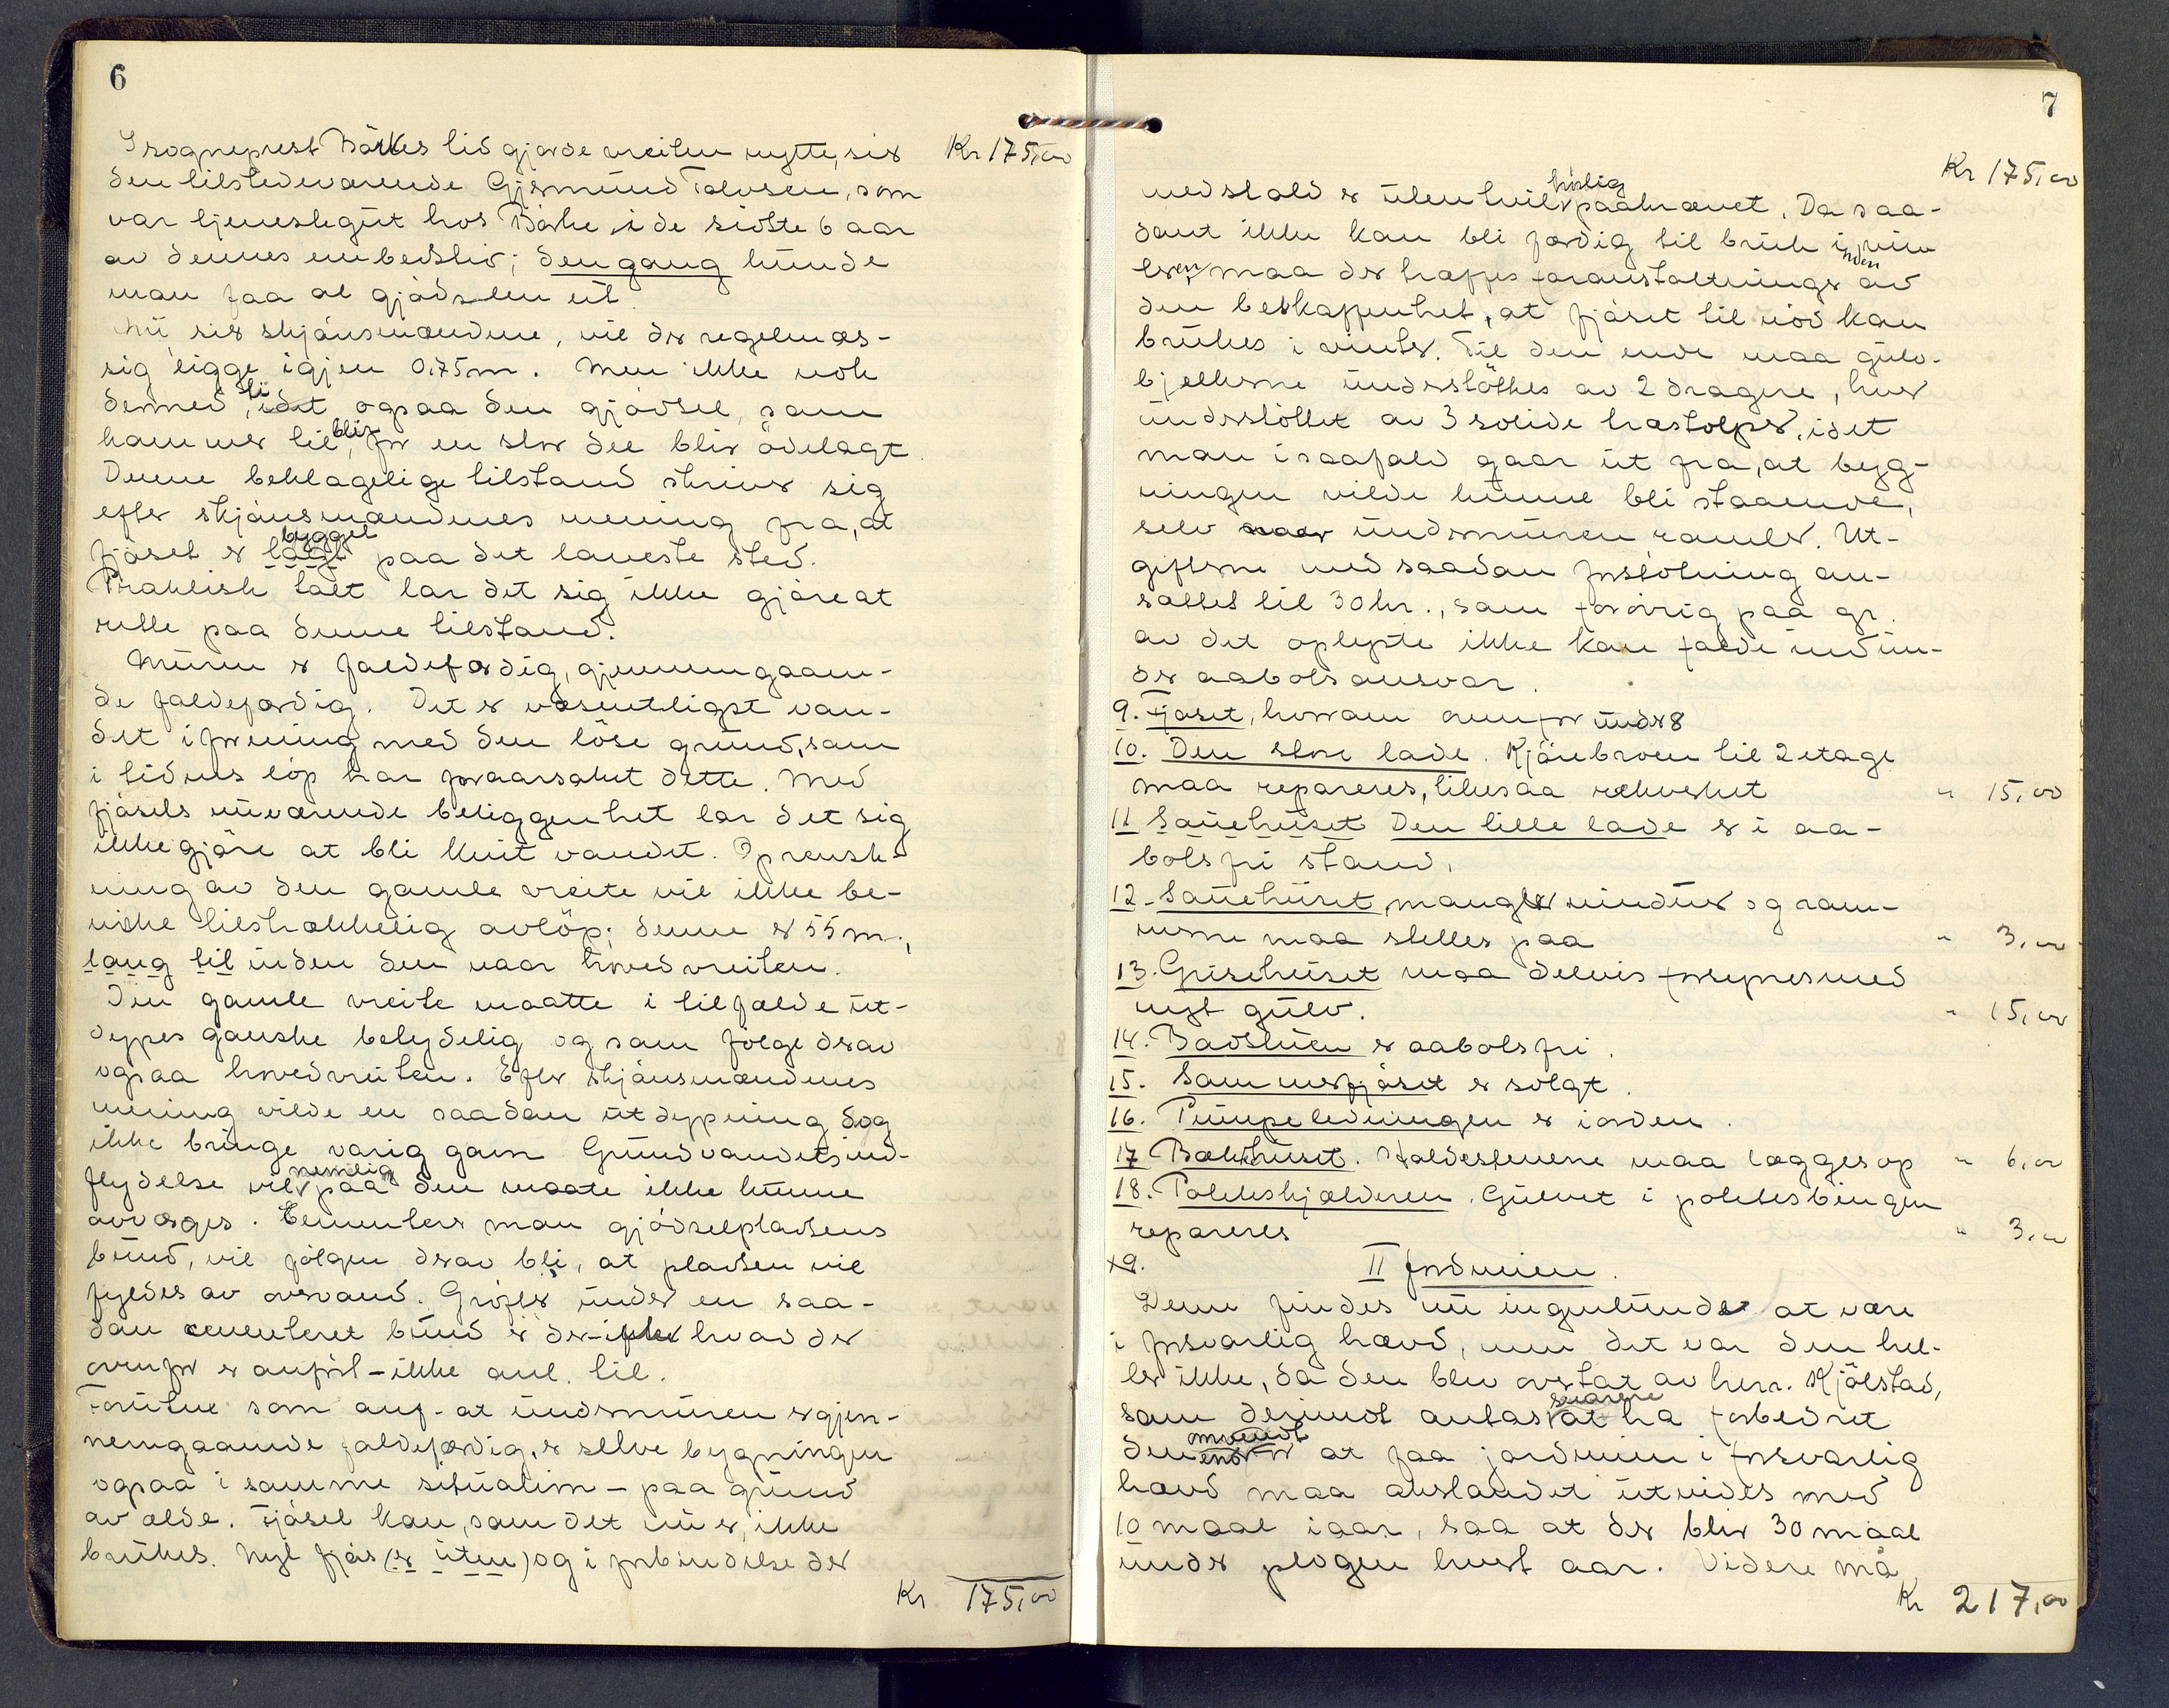 6
I sogneprest Bärkes tid gjorde vreiten nytte, sir Kr 175,00
den tilstedeværende Gjermund Talvsen, som
var tjenestegut hos Bärke i de sidste 6 aar
av dennes embedstid; dengang kunde
man faa al gjödselen ut.
Nu, sir skjönsmændene, vil der regelmæs-
sig ligge igjen 0,75 m. Men ikke nok
dermed, ti idet ogsaa den gjödsel, som
kommer til, blir for en stor del blir ödelagt.
Denne beklagelige tilstand skriver sig
efter skjönsmændenes mening fra, at
fjöset er lagt bygget paa det laveste sted.
Praktisk talt lar det sig ikke gjöre at
rette paa denne tilstand.
Muren er faldefærdig, gjennemgaaen-
de faldefærdig. Det er væsentligst van-
det i forening med den löse grund, som
i tidens löp har foraarsaket dette. Med
fjösets nuværende beliggenhet lar det sig
ikke gjöre at bli kvit vandet. Oprensk-
ning av den gamle vreite vil ikke be-
virke tilstrækkelig avlöp; denne er 55 m.,
lang til inden den naar hovedvreiten.
Den gamle vreite maatte i tilfælde ut-
dypes ganske betydelig og som fölge derav
ogsaa hovedvreiten. Efter skjönsmændenes
mening vilde en saadan utdypning dog
ikke bringe varig gavn. Grundvandets ind-
flydelse vil nemlig paa den maate ikke kunne
avværges. Cementeres man gjödselpladsens
bund, vil fölgen derav bli, at pladsen vil
fyldes av overvand. Gröfter under en saa-
dan cementeret bund er der efter hvad der
ovenfor er anfört - ikke anl. til.
Foruten som anf. at undermuren er gjen-
nemgaaende faldefærdig, er selve bygningen
ogsaa i samme situation - paa grund
av ælde. Fjöset kan, som det nu er, ikke
brukes. Nyt fjös (er uten) og i forbindelse der
Kr 175,00
7
Kr 175,00
med stald er utentvil höilig paakrævet. Da saa-
dant ikke kan bli færdig til bruk i inden vin
teren, maa der træffes foranstaltninger av
den beskaffenhet, at fjöset til nöd kan
brukes i vinter. Til den ende maa gulv-
bjelkerne understöttes av 2 dragere, hver
understöttet av 3 solide træstolper, idet
man i saafald gaar ut fra, at byg-
ningen vilde kunne bli staaende,
selv naar undermuren ramler. Ut-
gifterne med saadan forstötning an-
sættes til 30 kr., som forövrig paa gr.
av det oplyste ikke kan falde ind un-
der aabotsansvar.
9. Fjöset, hvorom ovenfor under 8
10. Den store lade. Kjörebroen til 2 etage
maa repareres, likesaa rækverket " 15,00
11 Sauehuset Den lille lade er i aa-
botsfri stand.
12. Sauehuset mangler vinduer og ram-
merne maa stelles paa " 3,00
13. Grisehuset maa delvis forsynes med
nyt gulv. " 15,00
14. Badstuen er aabotsfri.
15. Sommerfjöset er solgt.
16. Pumpeledningen er i orden.
17 Bækhuset. Haldestenene maa lægges op " 6,00
18. Potetkjælderen. Gulvet i potetesbingen
repareres " 3,00
19. II Jordveien.
Denne findes nu ingenlunde at være
i forsvarlig hævd, men det var den hel-
ler ikke, da den blev overtat av herr. Kjölstad,
som derimot antas snarere at ha forbedret
den omendt end for at faa jordveien i forsvarlig
hævd maa akerlandet utvides med
10 maal iaar, saa at der blir 30 maal
under plogen hvert aar. Videre må
Kr 217,00